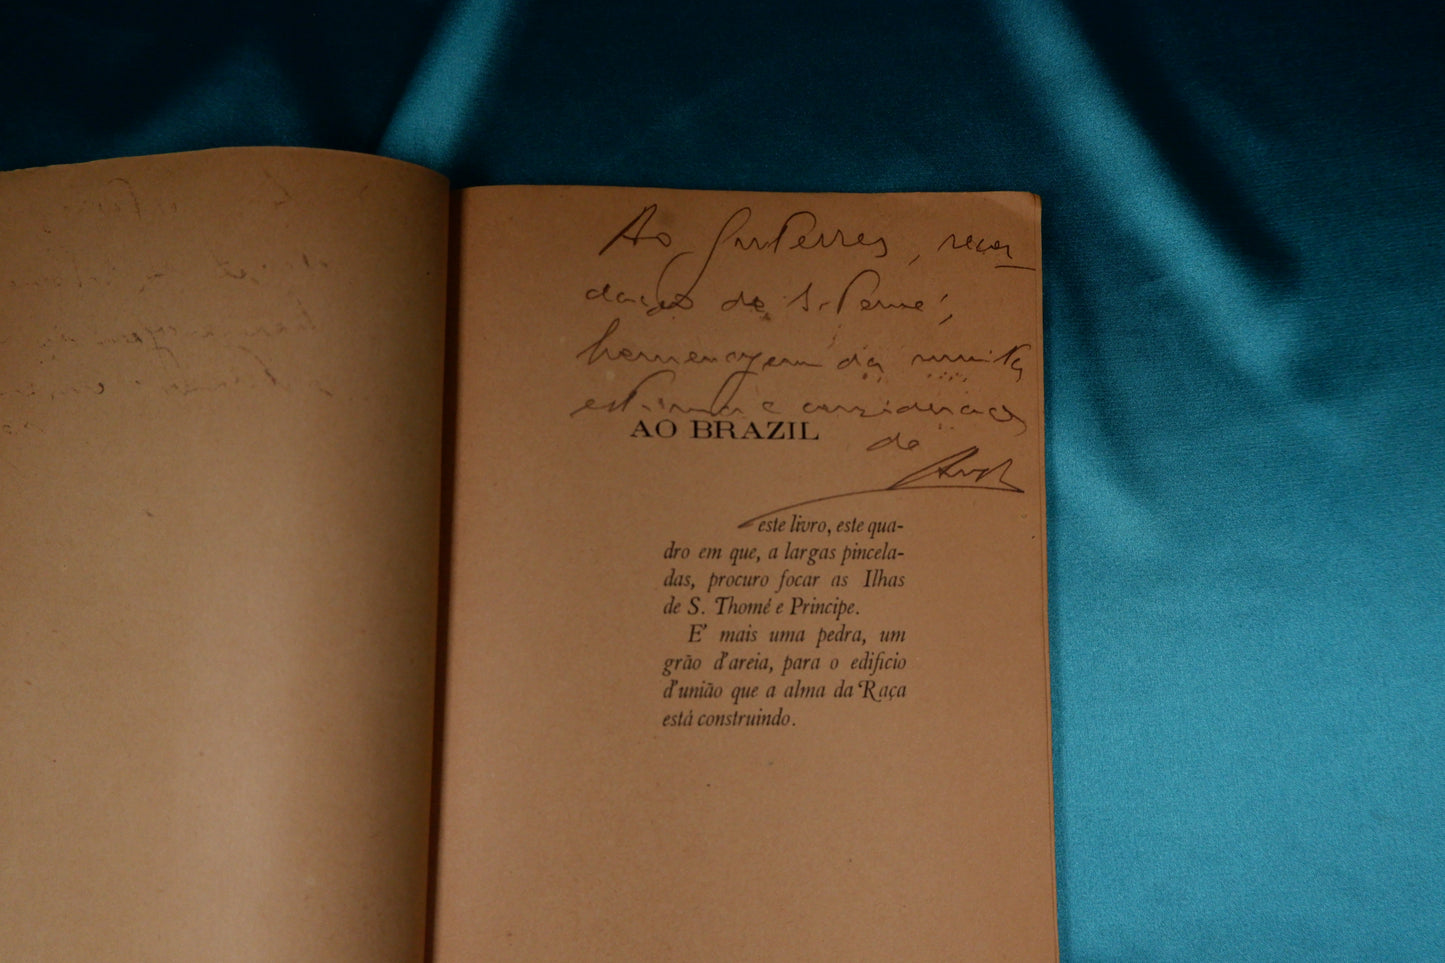 Ao Guterres, recor-
dação de S. Tomé,
homenagem da muita
estima e consideração
de
AO BRAZIL
este livro, este qua-
dro em que, a largas pincela-
das, procuro focar as Ilhas
de S. Thomé e Principe.
E' mais uma pedra, um
grão d'areia, para o edificio
d'união que a alma da Raça
está construindo.